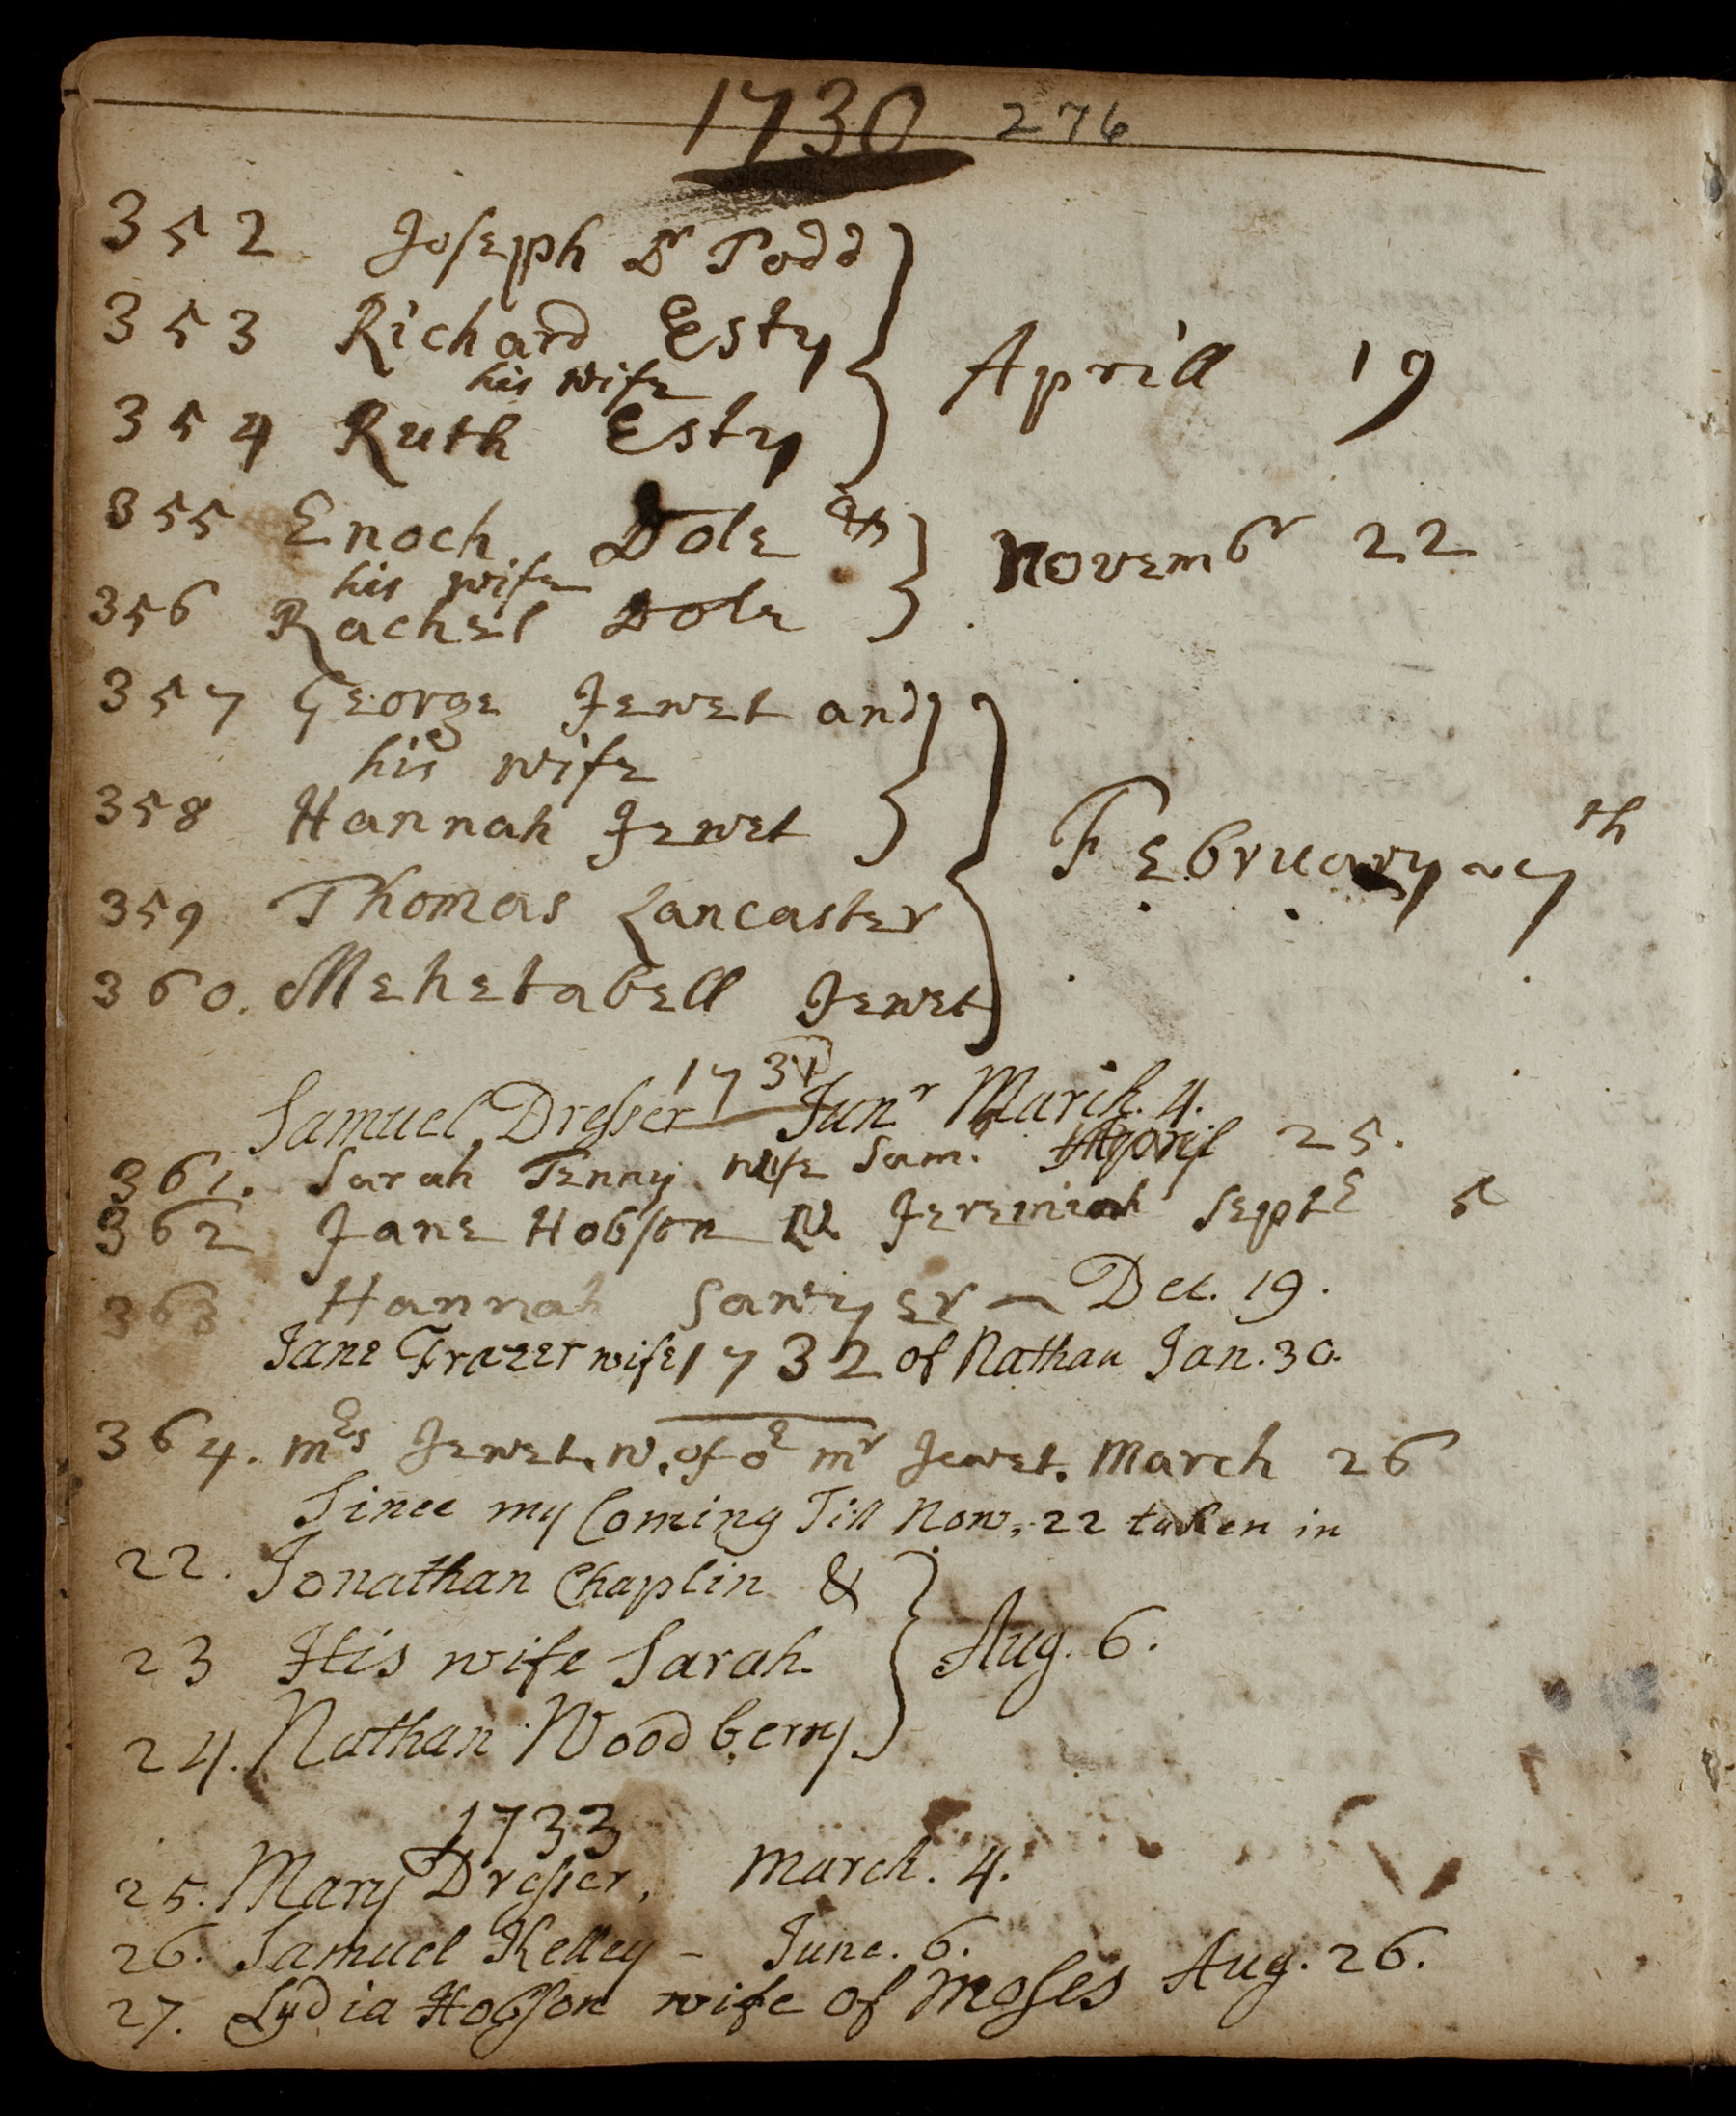 1730 276
352 Joseph Dr Todd
353 Richard Esty
his wife
354 Ruth Esty
Aprill 19
355 Enoch Dole &
his wife
356 Rachel Dole
Novembr 22
357 George Jewet and
his wife
358 Hannah Jewet
359 Thomas Lancaster
360. Mehetabell Jewet
February 7th
1731
Samuel Dresser Junr March. 4.
361. Sarah Tenny wife Sam. April 25.
362 Jane Hobson W Jeremiah Septe 5
363 Hannah Sawyer Dec. 19.
Jane Frazer wife 1732 of Nathan Jan. 30.
364. mrs Jewet. w. of oe mr Jewet. March 26
Since my Coming Till Now, 22 taken in
22. Jonathan Chaplin &
23 His wife Sarah.
24. Nathan Woodberry
Aug. 6.
1733
25. Mary Dresser, March. 4.
26. Samuel Kelley - June. 6.
27. Lydia Hobson wife of Moses Aug. 26.